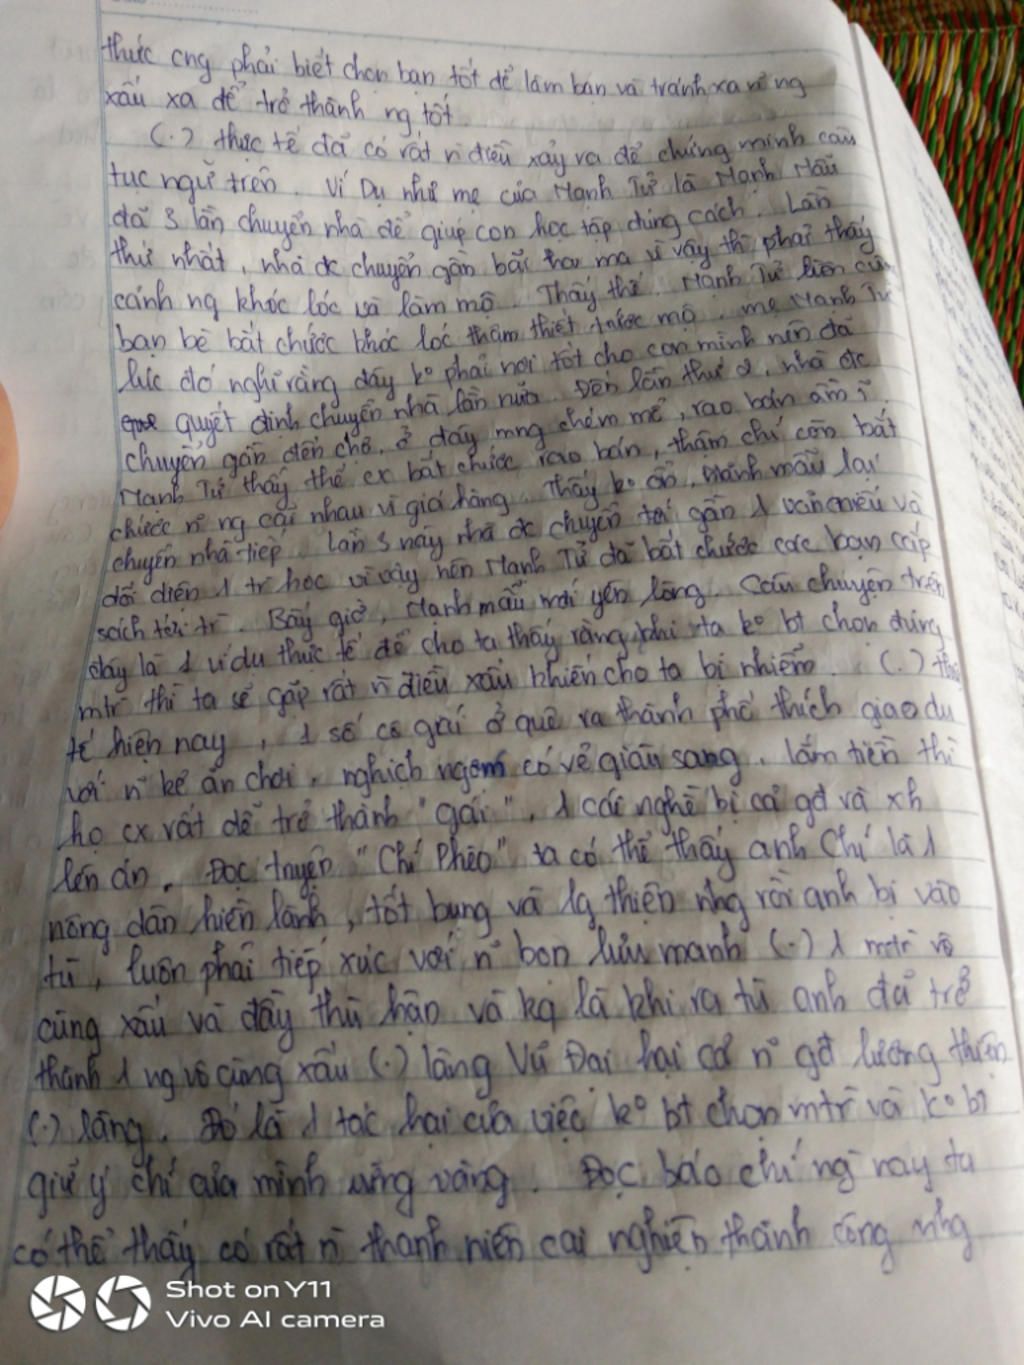 thức cng phải biết chọn bạn tốt để làm bạn và tránh xa n~ ng
xấu xa để trở thành ng tốt.
(.) thực tế đã có rất n điều xảy ra để chứng minh câu
tục ngữ trên. Ví Dụ như mẹ của Mạnh Tử là Mạnh Mẫu
đã 3 lần chuyển nhà để giúp con học tập đúng cách. Lần
thứ nhất, nhà đc chuyển gần bãi tha ma vì vậy thì phải thấy
cảnh ng khóc lóc và làm mộ. Thấy thế. Mạnh Tử liền cùng
bạn bè bắt chước khóc lóc thảm thiết trước mộ. mẹ Mạnh Tử
lúc đó nghĩ rằng đây ko phải nơi tốt cho con mình nên đã
quyết định chuyển nhà lần nữa. Đến lần thứ 2, nhà đc
chuyển gần đến chợ, ở đây mng chém mé, rao bán ầm ĩ.
Mạnh Tử thấy thế cx bắt chước rao bán, thậm chí còn bắt
chước n~ ng cãi nhau vì giá hàng. Thấy ko ổn, Mạnh mẫu lại
chuyển nhà tiếp. Lần 3 này nhà đc chuyển tới gần 1 văn miếu và
đối diện 1 tr học vì vậy nên Mạnh Tử đã bắt chước các bạn cắp
sách tới tr. Bấy giờ, Mạnh mẫu mới yên lòng. Câu chuyện trên
đây là 1 ví dụ thực tế để cho ta thấy rằng khi ta ko bt chọn đúng
mtr thì ta sẽ gặp rất n điều xấu khiến cho ta bị nhiễm. (.) thực
tế hiện nay, 1 số cô gái ở quê ra thành phố thích giao du
với n~ kẻ ăn chơi, nghịch ngợm có vẻ giàu sang, lắm tiền thì
họ cx rất dễ trở thành "gái", 1 cái nghề bị cả gđ và xh
lên án. Đọc truyện "Chí Phèo" ta có thể thấy anh Chí là 1
nông dân hiền lành, tốt bụng và lg thiện nhg rồi anh bị vào
tù, luôn phải tiếp xúc với n~ bọn lưu manh (.) 1 mtr vô
cùng xấu và đầy thù hận và kq là khi ra tù anh đã trở
thành 1 ng vô cùng xấu (.) làng Vũ Đại hại cả n~ gđ lương thiện
(.) làng. Đó là 1 tác hại của việc ko bt chọn mtr và ko bt
giữ ý chí của mình vững vàng. Đọc báo chí ng nay ta
có thể thấy có rất n thanh niên cai nghiện thành công nhg
Shot on Y11
Vivo AI camera